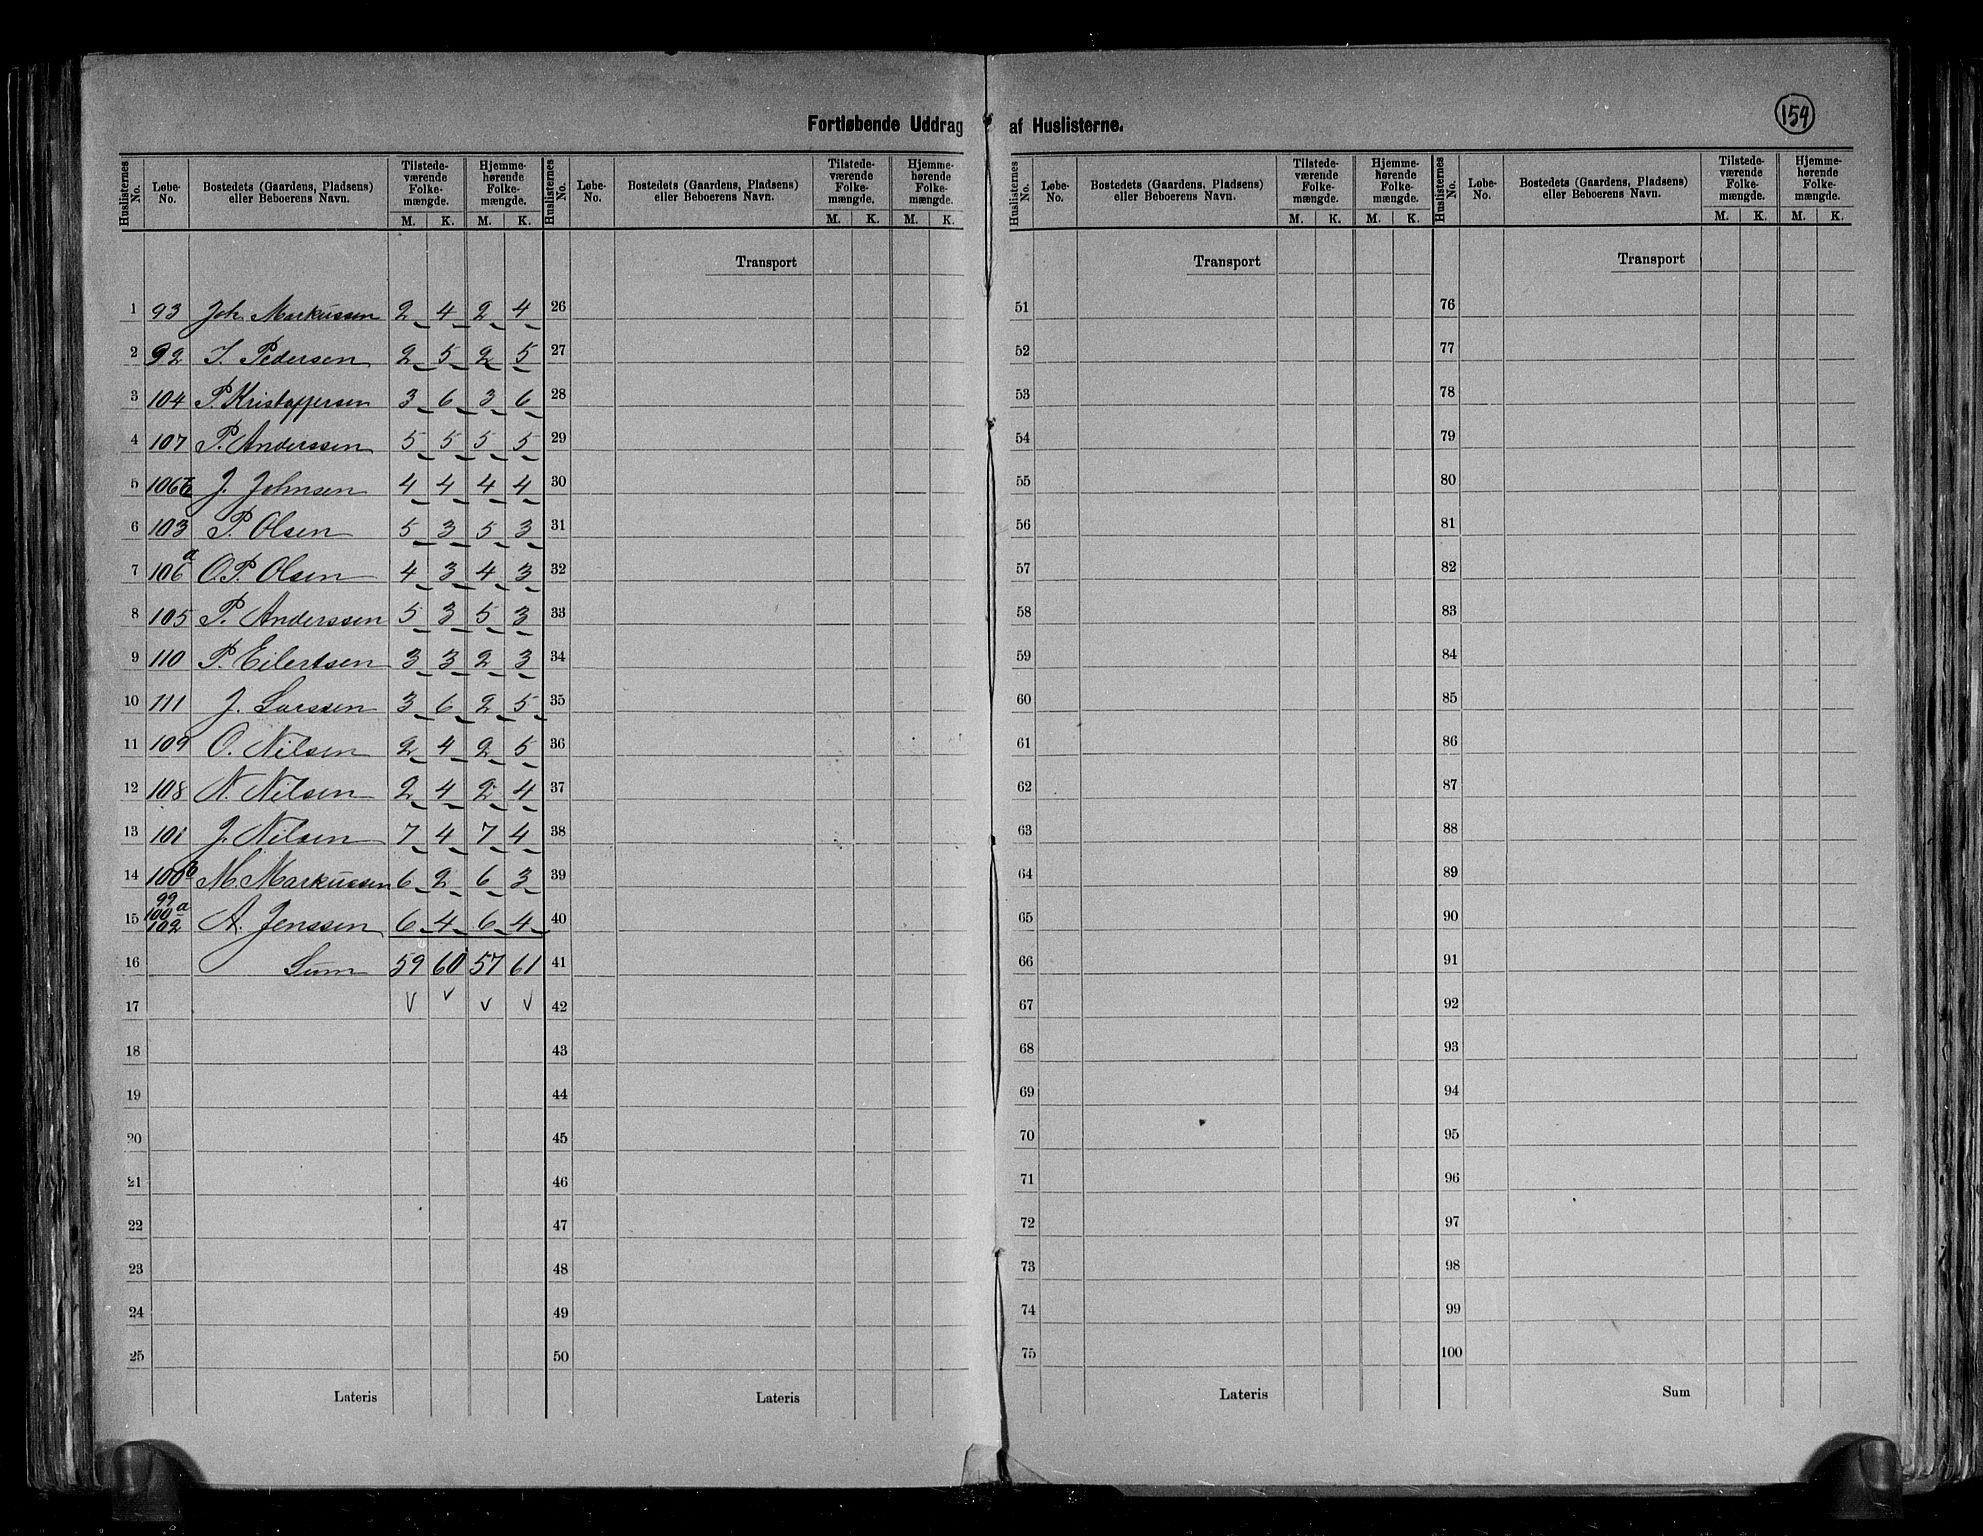 159
Fortløbende Uddrag af Huslisterne.
Huslisternes No. Løbe-No. Bostedets (Gaardens, Pladsens) eller Beboerens Navn. Tilstede-værende Folke-mængde. M. K. Hjemme-hørende Folke-mængde. M. K.
Huslisternes No. Løbe-No. Bostedets (Gaardens, Pladsens) eller Beboerens Navn. Tilstede-værende Folke-mængde. M. K. Hjemme-hørende Folke-mængde. M. K.
Huslisternes No. Løbe-No. Bostedets (Gaardens, Pladsens) eller Beboerens Navn. Tilstede-værende Folke-mængde. M. K. Hjemme-hørende Folke-mængde. M. K.
Huslisternes No. Løbe-No. Bostedets (Gaardens, Pladsens) eller Beboerens Navn. Tilstede-værende Folke-mængde. M. K. Hjemme-hørende Folke-mængde. M. K.
Transport Transport Transport
1 93 Joh. Markussen 2 4 2 4 26 51 76
2 92 I. Pedersen 2 5 2 5 27 52 77
3 104 P. Kristoffersen 3 6 3 6 28 53 78
4 107 P. Anderssen 5 5 5 5 29 54 79
5 106b J. Johnsen 4 4 4 4 30 55 80
6 103 P. Olsen 5 3 5 3 31 56 81
7 106a O.P. Olsen 4 3 4 3 32 57 82
8 105 P. Anderssen 5 3 5 3 33 58 83
9 110 P. Eilertsen 3 3 2 3 34 59 84
10 111 J. Larssen 3 6 2 5 35 60 85
11 109 O. Nilsen 2 4 2 5 36 61 86
12 108 N. Nilsen 2 4 2 4 37 62 87
13 101 J. Nilsen 7 4 7 4 38 63 88
14 100b M. Markussen 6 2 6 3 39 64 89
15 99 100a 102 A. Jenssen 6 4 6 4 40 65 90
16 Sum 59 60 57 61 41 66 91
17 v v v v 42 67 92
18 43 68 93
19 44 69 94
20 45 70 95
21 46 71 96
22 47 72 97
23 48 73 98
24 49 74 99
25 50 75 100
Lateris Lateris Lateris Sum